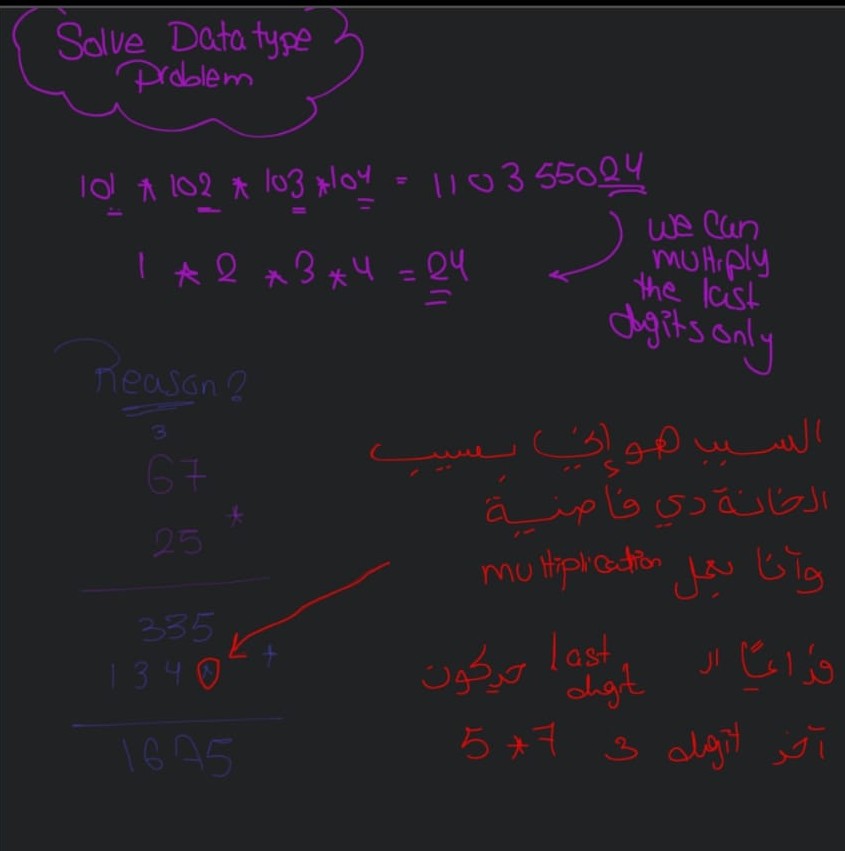 Solve Data type
Problem
101 * 102 * 103 * 104 = 110355024
1 * 2 * 3 * 4 = 24
we can
multiply
the last
digits only
Reason?
3
67
25 *
335
1340 +
1675
السبب هو إني بسبب
الخانة دي فاضية
وأنا بعمل multiplication
فدائمًا ال last digit هيكون
آخر digit في 5 * 7